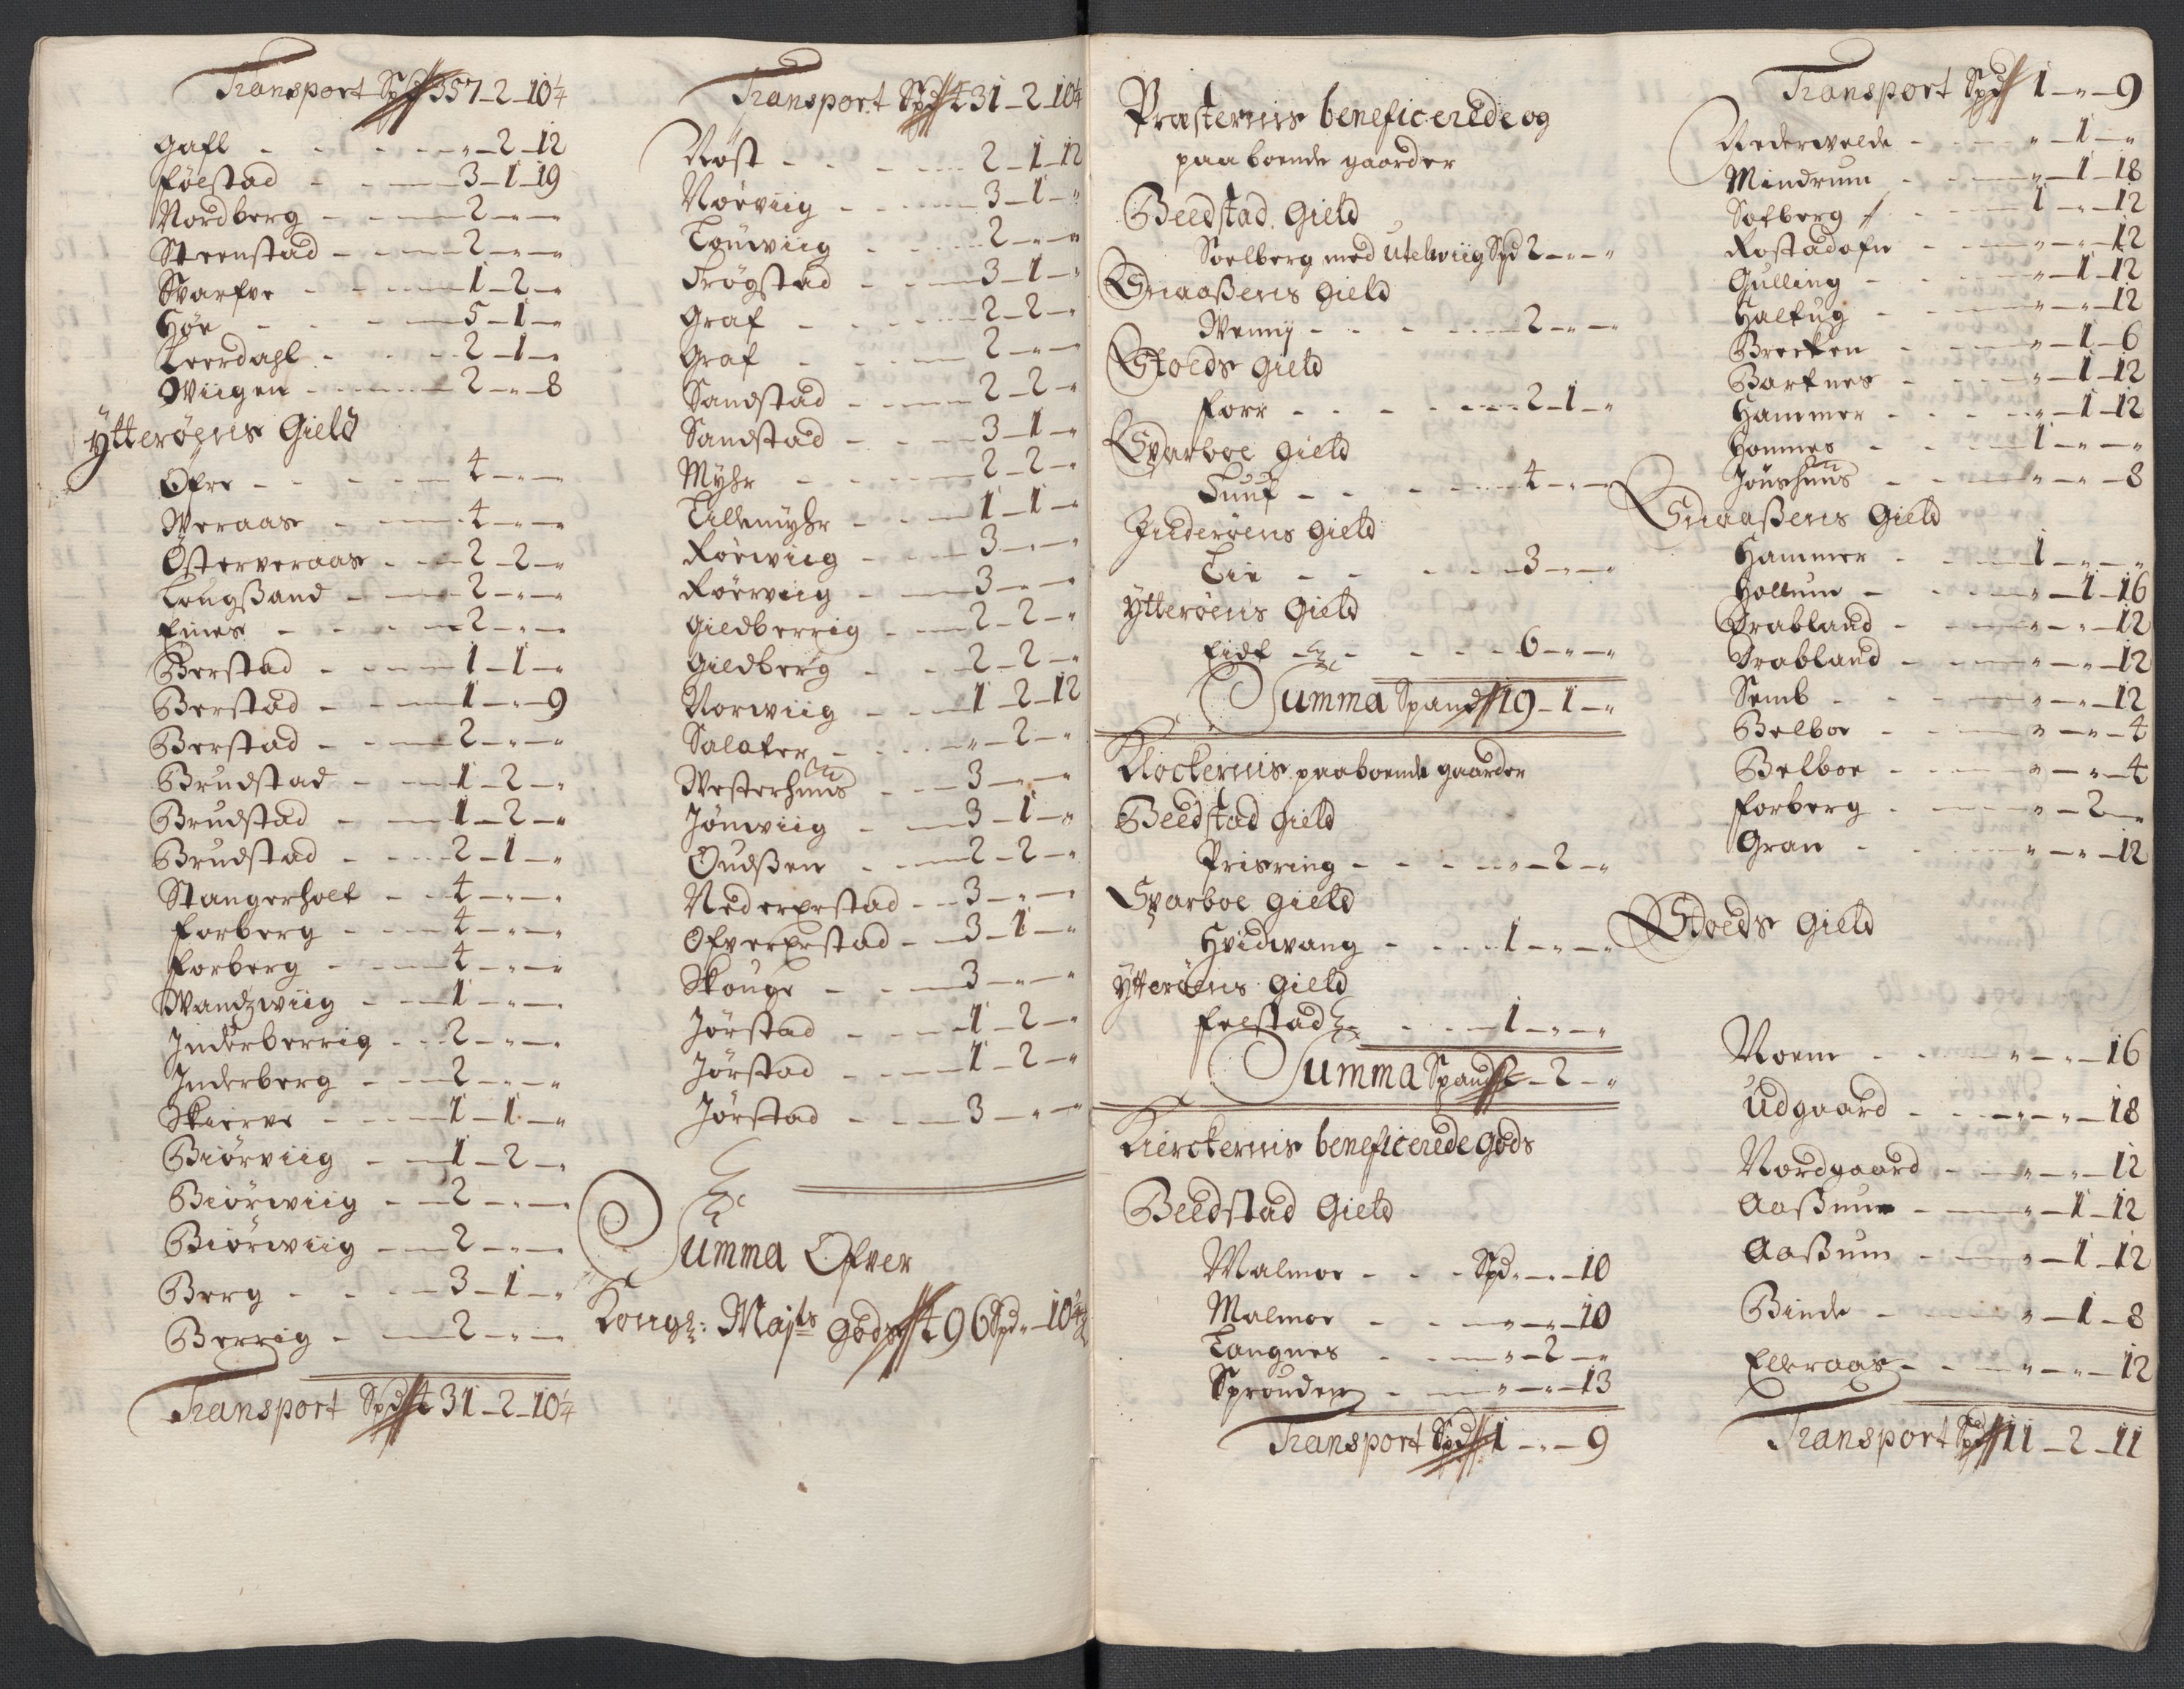 Transport Spd 357-2-10¼
Gafl - - - „-2-12
Følstad - - 3-1-19
Nordberg - - 2-„-„
Steenstad - - 2-„-„
Skarfve - - 1-2-„
Høe - - 5-1-„
Leerdahl - - 2-1-„
Wiigen - - 2-„-8
Ytterøens Gield
Øfre - - 4-„-„
Weraas - - 4-„-„
Østerveraas - - 2-2-„
Longßand - - 2-„-„
Eines - - 2-„-„
Berstad - - 1-1-„
Berstad - - 1-„-9
Berstad - - 2-„-„
Brudstad - - 1-2-„
Brudstad - - 1-2-„
Brudstad - - 2-1-„
Stangerholt - - 4-„-„
Forberg - - 4-„-„
Forberg - - 4-„-„
Wandzwiig - - 1-„-„
Inderberrig - - 2-„-„
Inderberg - - 2-„-„
Skierve - - 1-1-„
Biørviig - - 1-2-„
Biørwiig - - 2-„-„
Biørwiig - - 2-„-„
Berg - - 3-1-„
Berrig - - 2-„-„
Transport Spd 431-2-10¼
Transport Spd 431-2-10¼
Røst - - 2-1-12
Nørviig - - 3-1-„
Louwiig - - 2-„-„
Trøgstad - - 3-1-„
Graf - - 2-2-„
Graf - - 2-„-„
Sandstad - - 2-2-„
Sandstad - - 3-1-„
Myhr - - 2-2-„
Tillemyhr - - 1-1-„
Rørwiig - - 3-„-„
Rørviig - - 3-„-„
Gildberrig - - 2-2-„
Gildberg - - 2-2-„
Norwiig - - 1-2-12
Salater - - „-2-„
Westerhuus - - 3-„-„
Jønwiig - - 3-1-„
Oudßen - - 2-2-„
Nederxestad - - 3-„-„
Ofverxestad - - 3-1-„
Skouge - - 3-„-„
Jørstad - - 1-2-„
Jørstad - - 1-2-„
Jørstad - - 3-„-„
Summa Ofver
Kongl: Majts Gods 496 Spd „-10¼
Præsternis beneficerede og
paaboende gaarder
Beedstad Gield
Soelberg med Utelwiig Spd 2-„-„
Snaaßens Gield
Wenny - - 2-„-„
Stoeds Gield
Forr - - 2-1-„
Sparboe Gield
Tuuf - - 4-„-„
Inderøens Gield
Lie - - 3-„-„
Ytterøens Gield
Eide - - 6-„-„
Summa Spand 19-1-„
Klockernis paaboende gaarder
Beedstad Gield
Prisring - - „-2-„
Sparboe Gield
Hvidwang - - 1-„-„
Ytterøens Gield
Felstad - - 1-„-„
Summa Spand 2-2-„
Kierckernis beneficerede Gods
Beedstad Gield
Malmoe - - Spd „-„-10
Malmoe - - „-„-10
Tangnes - - „-2-„
Sprouden - - „-„-13
Transport Spd 1-„-9
Transport Spd 1-„-9
Nederwelde - - „-1-„
Mindrum - - „-1-18
Solberg - - 1-„-12
Rostadofn - - „-„-12
Gulling - - „-1-12
Haltug - - „-„-12
Brecken - - „-1-6
Barknes - - „-1-12
Hammer - - „-1-12
Hommes - - 1-„-„
Jønshuus - - „-„-8
Snaaßens Gield
Hammer - - 1-„-„
Hollum - - „-1-16
Brabland - - „-„-12
Brabland - - „-„-12
Semb - - „-„-12
Belboe - - „-„-4
Belboe - - „-„-4
Forberg - - „-2-„
Gran - - „-„-12
Stoeds Gield
Noem - - „-„-16
Udgaard - - „-„-18
Nordgaard - - „-„-12
Aaßum - - „-1-12
Aaßum - - „-1-12
Binde - - „-1-8
Elleraas - - „-„-12
Transport Spd 11-2-11